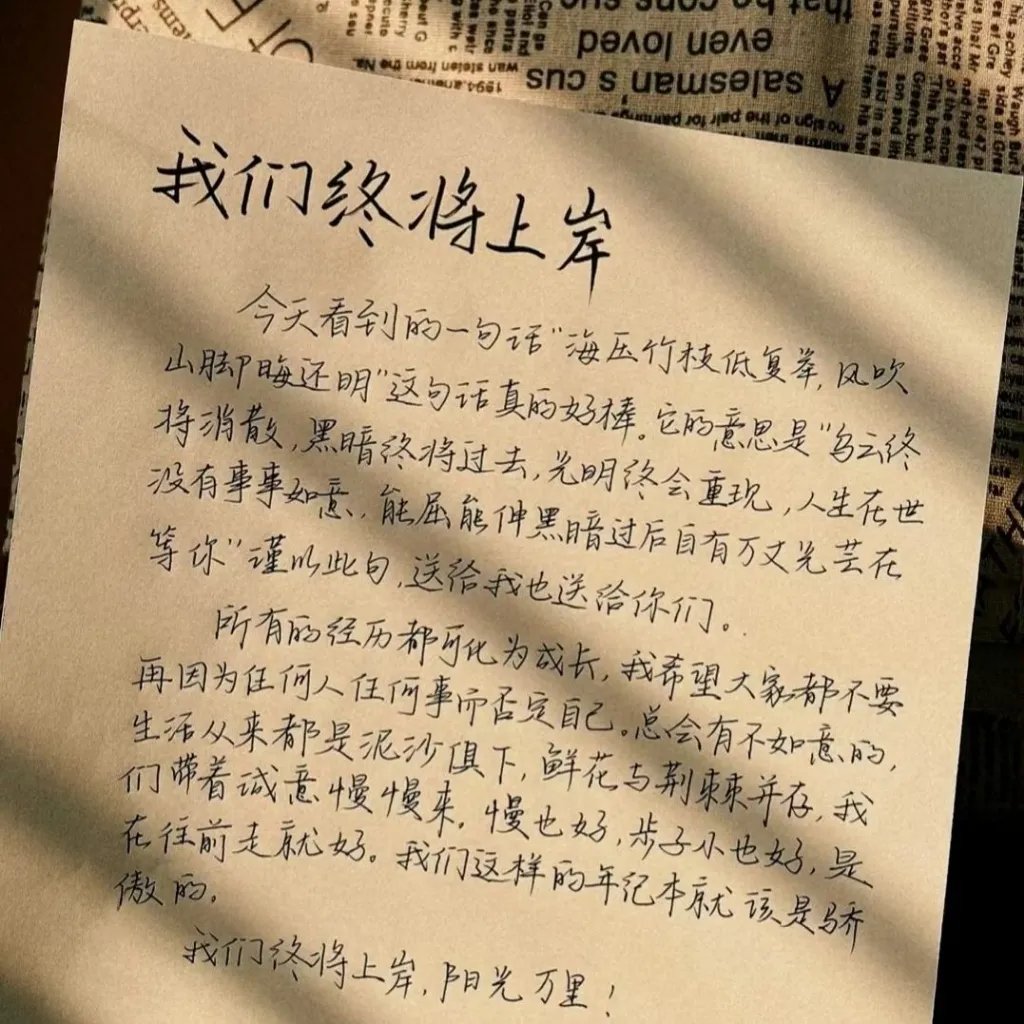 我们终将上岸
今天看到的一句话“海压竹枝低复举,风吹
山脚晦还明”这句话真的好棒。它的意思是“乌云终
将消散,黑暗终将过去,光明终会重现,人生在世
没有事事如意,能屈能伸黑暗过后自有万丈光芸在
等你”谨以此句,送给我也送给你们。
所有的经历都可化为成长,我希望大家都不要
再因为任何人任何事而否定自己。总会有不如意的,
生活从来都是泥沙俱下,鲜花与荆棘并存,我
们带着诚意慢慢来。慢也好,步子小也好,是
在往前走就好。我们这样的年纪本就该是骄
傲的。
我们终将上岸,阳光万里!
that be cons sue
even loved
A salesman s cus
no sign of the pair for pawnings
wan stelen from the Na